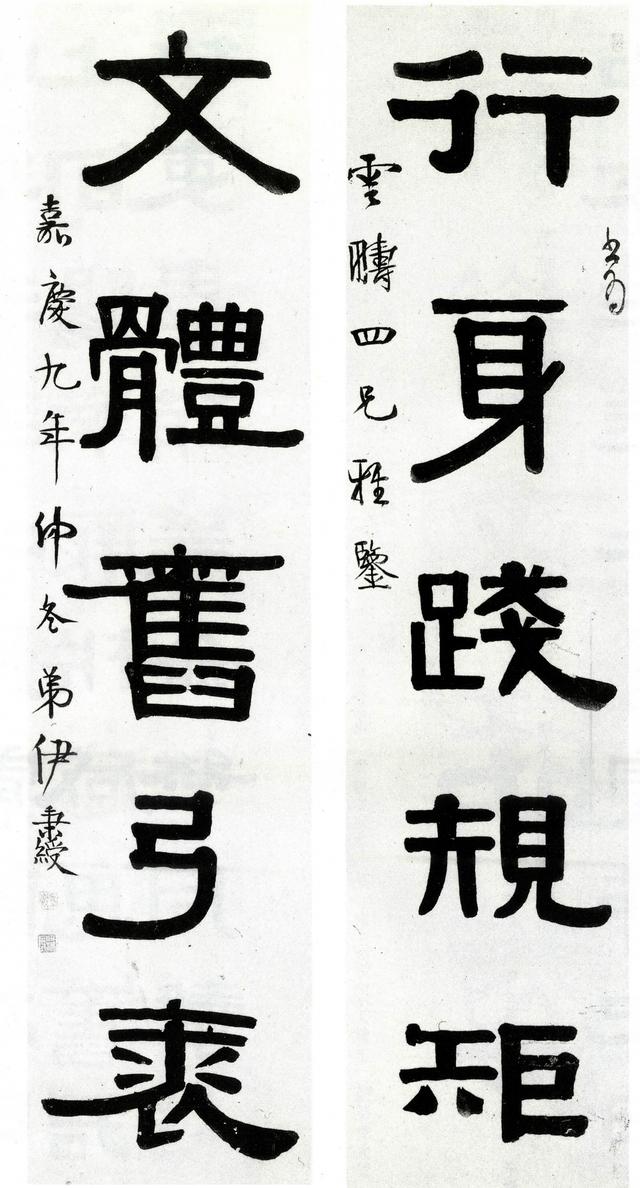 書為
行身踐規矩
雲疇四兄雅鑒
文體舊弓裘
嘉慶九年仲冬弟伊秉綬